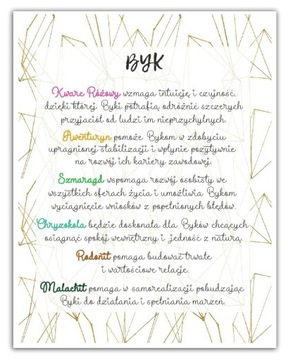 BYK
Kwarc Różowy wzmaga intuicję i czujność,
dzięki której Byki potrafią odróżnić szczerych
przyjaciół od ludzi im nieprzychylnych.
Awenturyn pomoże Bykom w zdobyciu
upragnionej stabilizacji i wpłynie pozytywnie
na rozwój ich kariery zawodowej.
Szmaragd wspomaga rozwój osobisty we
wszystkich sferach życia i umożliwia Bykom
wyciągnięcie wniosków z popełnionych błędów.
Chryzokola będzie doskonała dla Byków chcących
osiągnąć spokój wewnętrzny i jedność z naturą.
Rodonit pomaga budować trwałe
i wartościowe relacje.
Malachit pomaga w samorealizacji pobudzając
Byki do działania i spełniania marzeń.